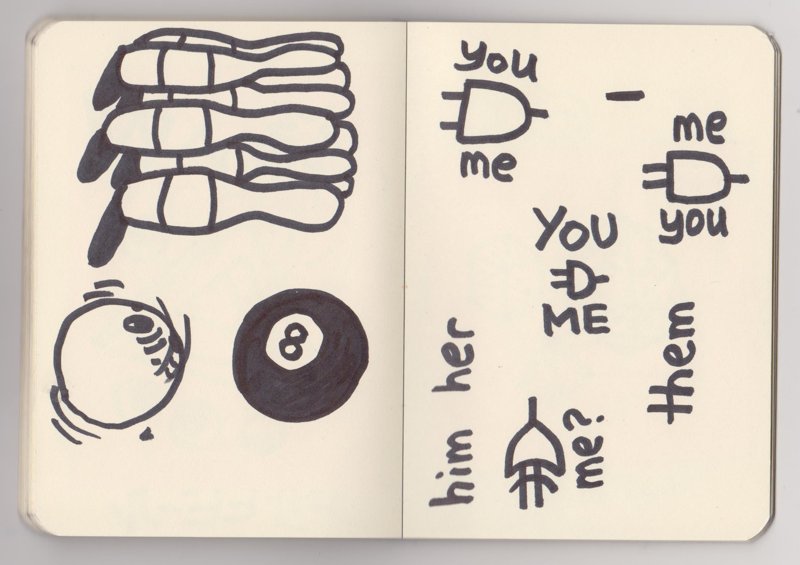 8
you
me
me
you
YOU
ME
him her
me?
them